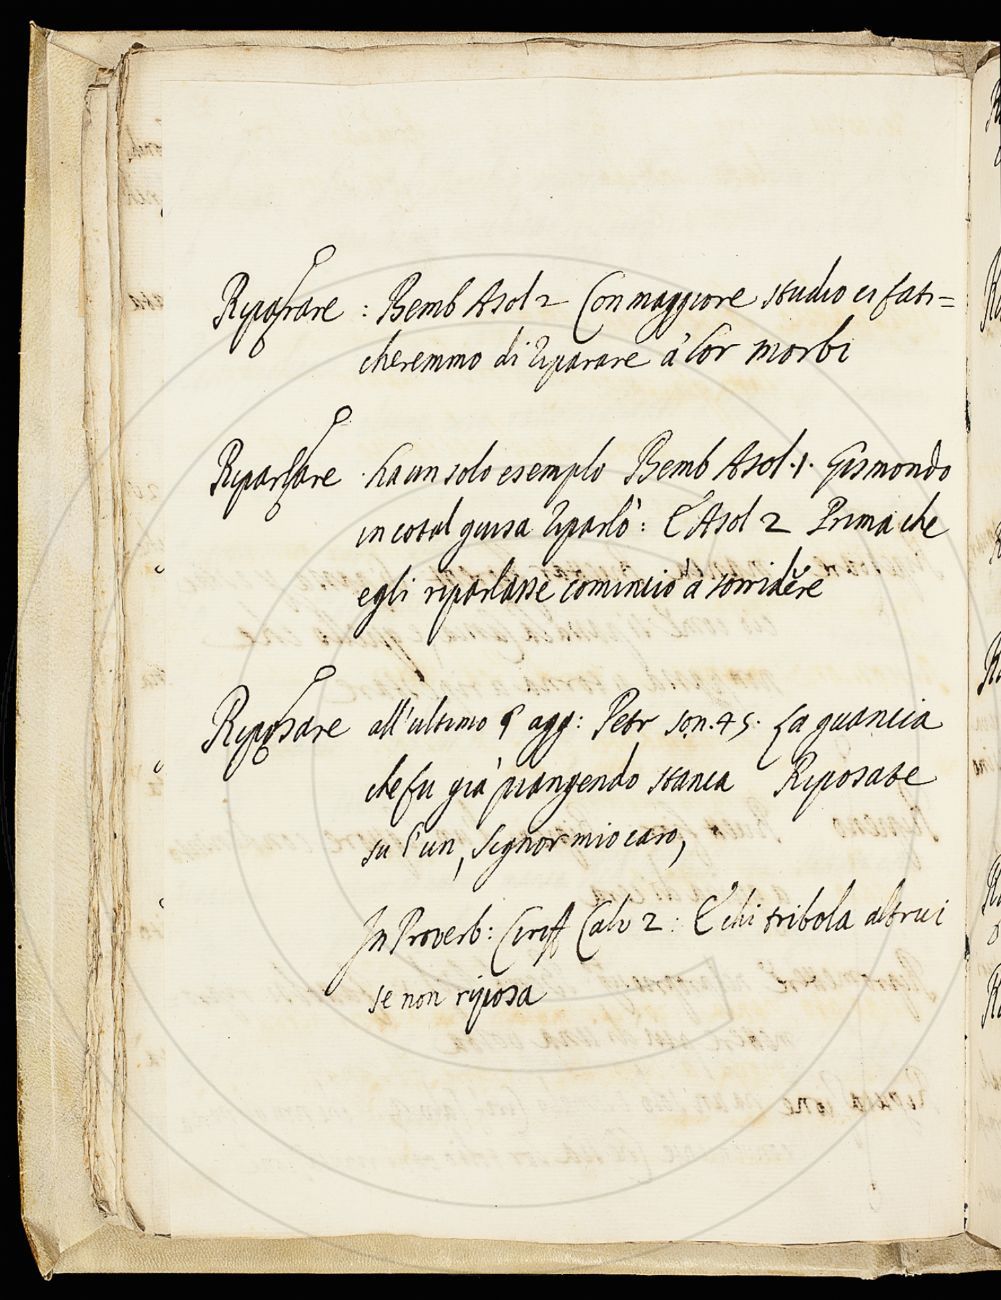 Riparare : Bemb Asol 2 Con maggiore studio ci fati=
cheremmo di riparare à lor morbi
Riparlare . ha un solo esemplo Bemb Asol. 1. Gismondo
in cotal guisa riparlò: E Asol 2 Prima che
egli riparlasse cominciò à sorridere
Riposare all'ultimo § agg: Petr son. 45. La guancia
che fu già piangendo stanca Riposate
su l'un, Signor mio caro,
In Proverb: Ciriff Calv 2: E chi tribola altrui
se non riposa